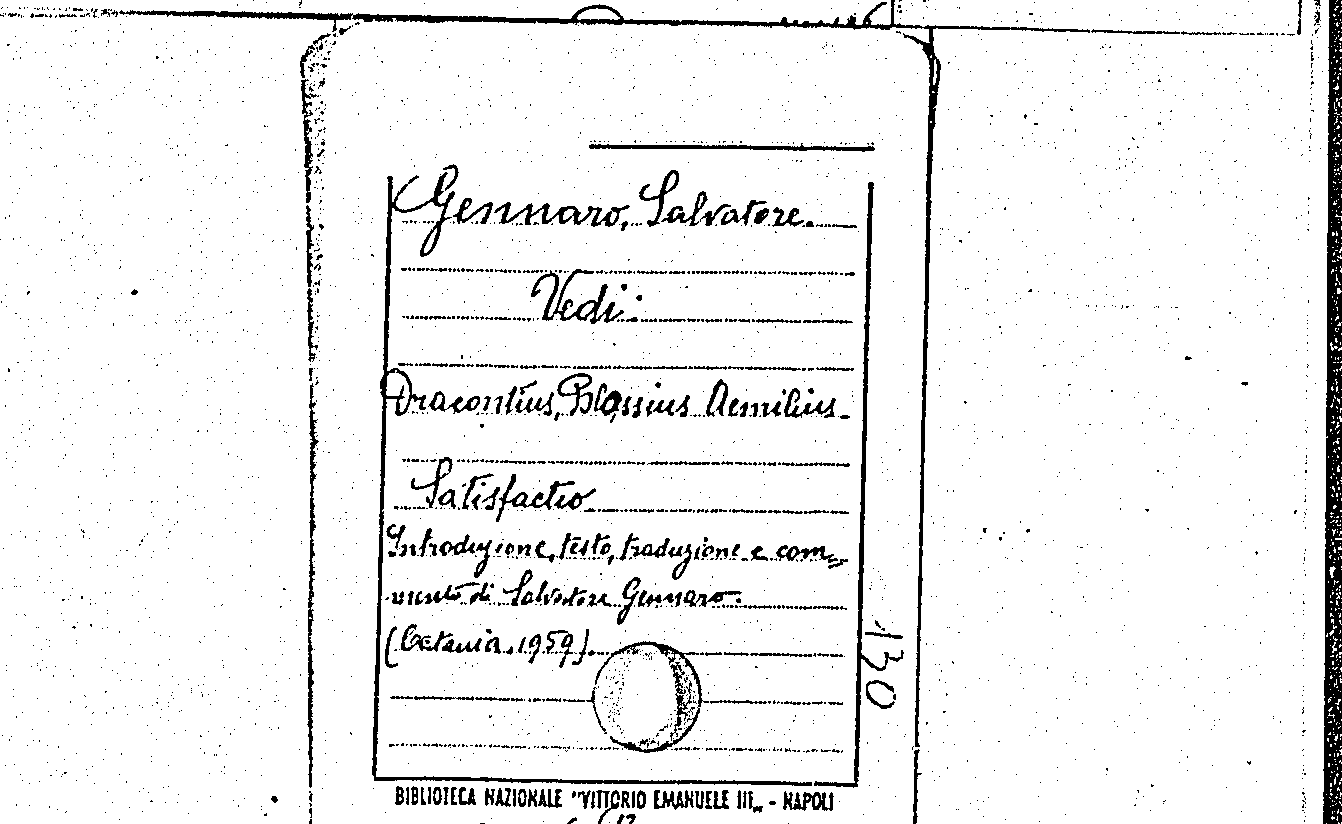 Gennaro, Salvatore.
Vedi:
Dracontius, Blossius Aemilius.
Satisfactio
Introduzione, testo, traduzione e com=
mento di Salvatore Gennaro.
(Catania, 1959).
130
BIBLIOTECA NAZIONALE "VITTORIO EMANUELE III„ - NAPOLI